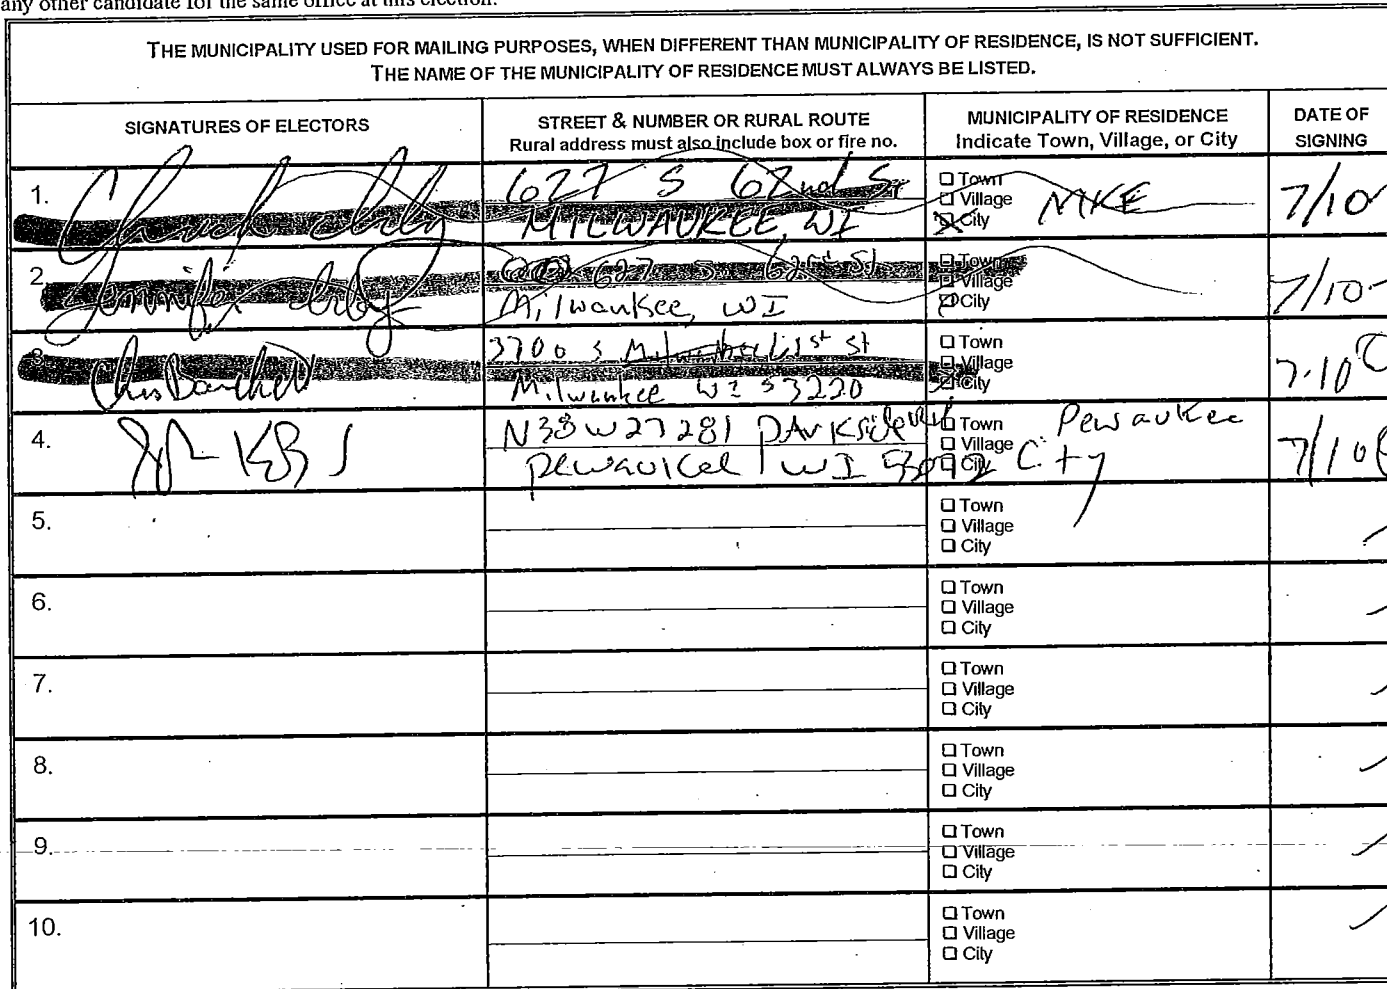 any other candidate for the same office at this election.
THE MUNICIPALITY USED FOR MAILING PURPOSES, WHEN DIFFERENT THAN MUNICIPALITY OF RESIDENCE, IS NOT SUFFICIENT.
THE NAME OF THE MUNICIPALITY OF RESIDENCE MUST ALWAYS BE LISTED.
SIGNATURES OF ELECTORS
STREET & NUMBER OR RURAL ROUTE
Rural address must also include box or fire no.
MUNICIPALITY OF RESIDENCE
Indicate Town, Village, or City
DATE OF
SIGNING
1.
Chuck
627 S 62nd St
MILWAUKEE, WI
Town
Village
City
MKE
7/10
2.
Jennifer
627 S 62nd St
Milwaukee, WI
Town
Village
City
7/10
3.
Chris
3700 S st St
Milwaukee WI 53220
Town
Village
City
7.10
4.
N38W27281 Parkside
Pewaukee WI 53072
Town
Village
City
Pewaukee
City
7/10
5.
Town
Village
City
6.
Town
Village
City
7.
Town
Village
City
8.
Town
Village
City
9.
Town
Village
City
10.
Town
Village
City